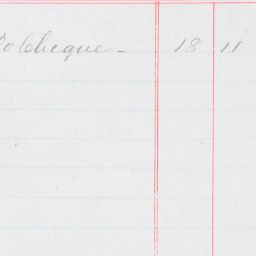 Do Cheque - 18 11